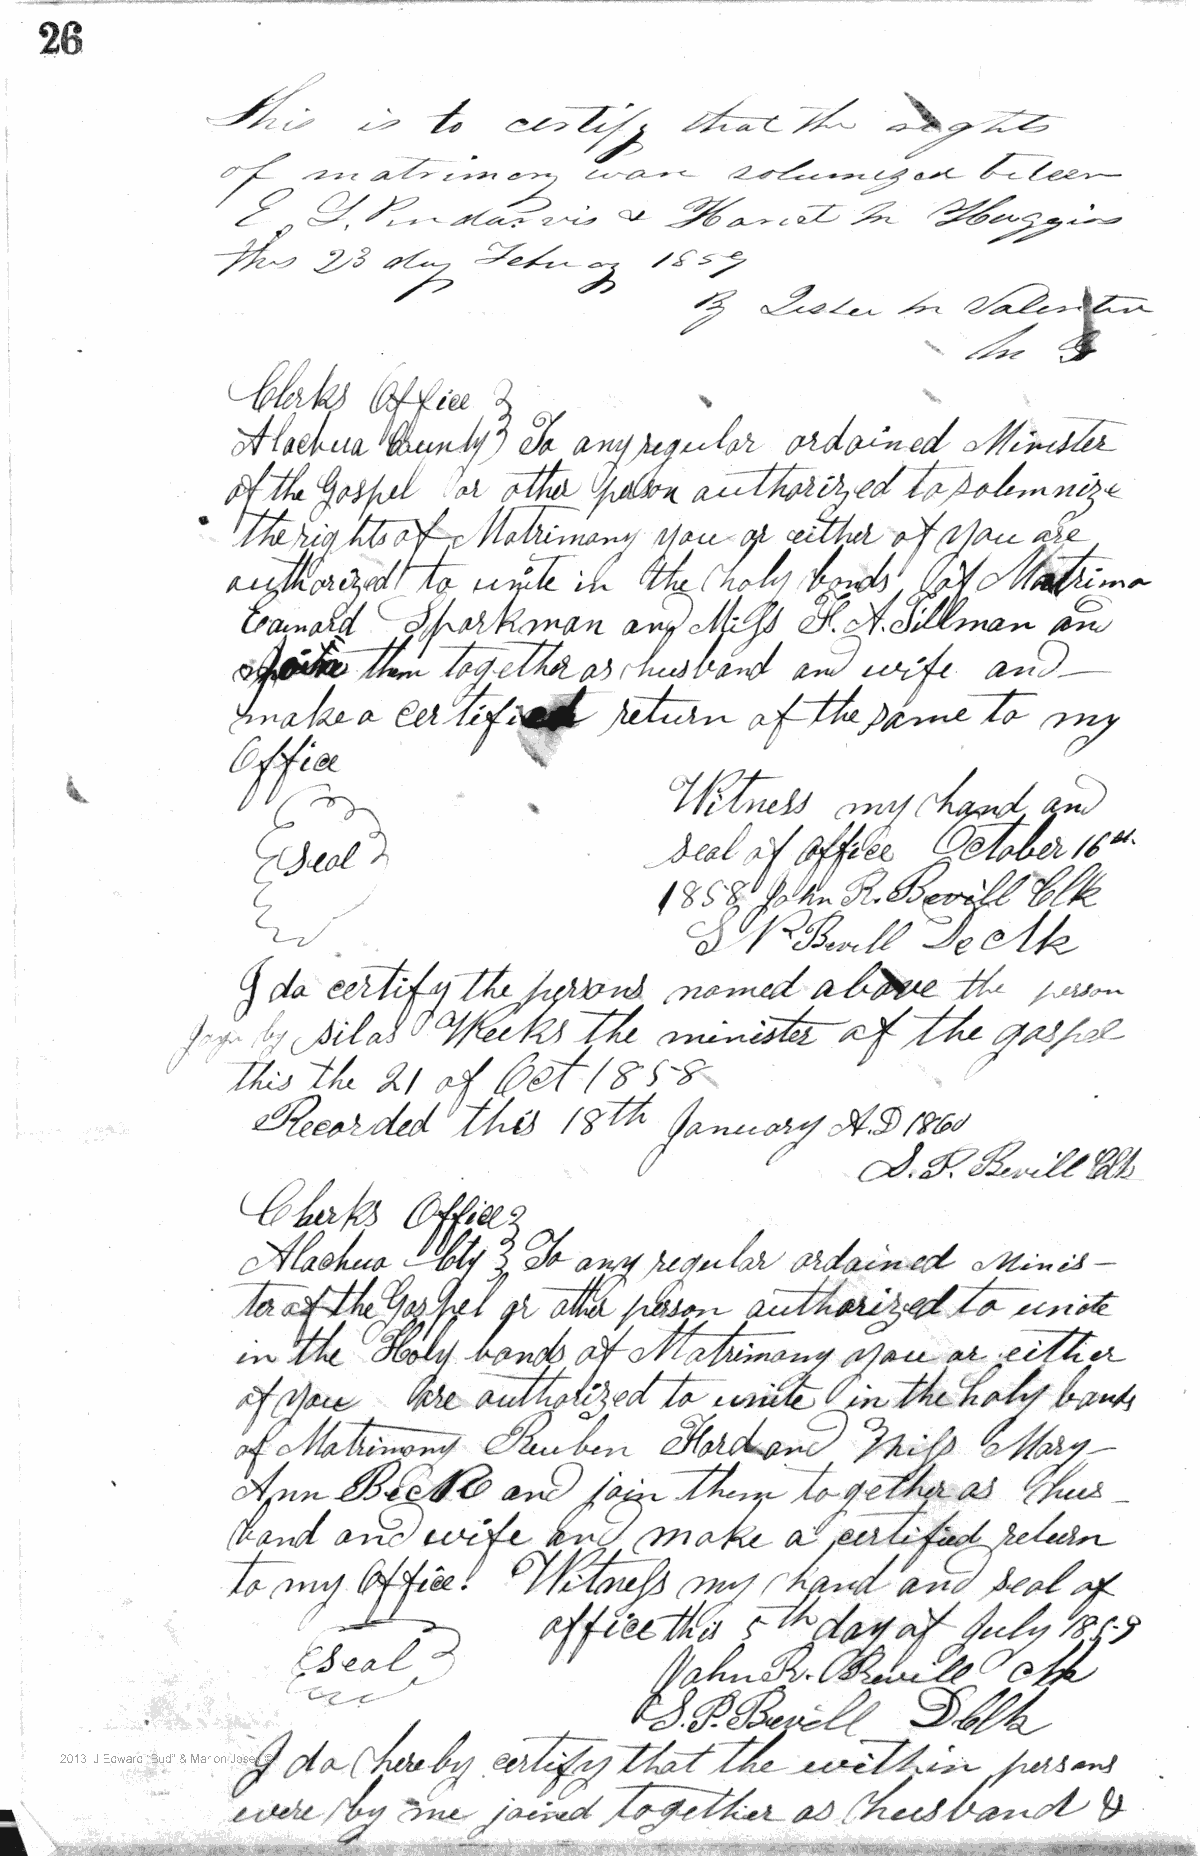 26
This is to certify that the rights
of matrimony ware solumized between
E. J. Pindarvis & Hariet M Huggins
this 23 day Febuary 1859
By Lester M Valentin
M G
Clerks Office
Alachua County To any regular ordained Minister
of the Gospel or other person authorized to solemnize
the rights of Matrimony you or either of you are
authorized to unite in the holy bonds of Matrimo
Sparkman and Miss F. A. Tillman and
them together as husband and wife and
make a certified return of the same to my
Office
Witness my hand and
seal of office October 16th
Seal
1858 John R. Bevill Clk
S P Bevill De Clk
I do certify the persons named above the person
by Silas Weeks the minister of the gospel
this the 21 of Oct 1858
Recorded this 18th January A.D 1860
S. P. Bevill Clk
Clerks Office
Alachua Cty To any regular ordained Minis-
ter of the Gospel or other person authorized to unite
in the Holy bonds of Matrimony you or either
of you are authorized to unite in the holy bands
of Matrimony Reuben Hord and Miss Mary
Ann Beck and join them together as hus-
band and wife and make a certified return
to my Office. Witness my hand and seal of
office this 5th day of July 1859
Seal
John R. Bevill Clk
S. P. Bevill D Clk
2013 J Edward "Bud" & Marion Josey ©
I do hereby certify that the within persons
were by me joined together as husband &